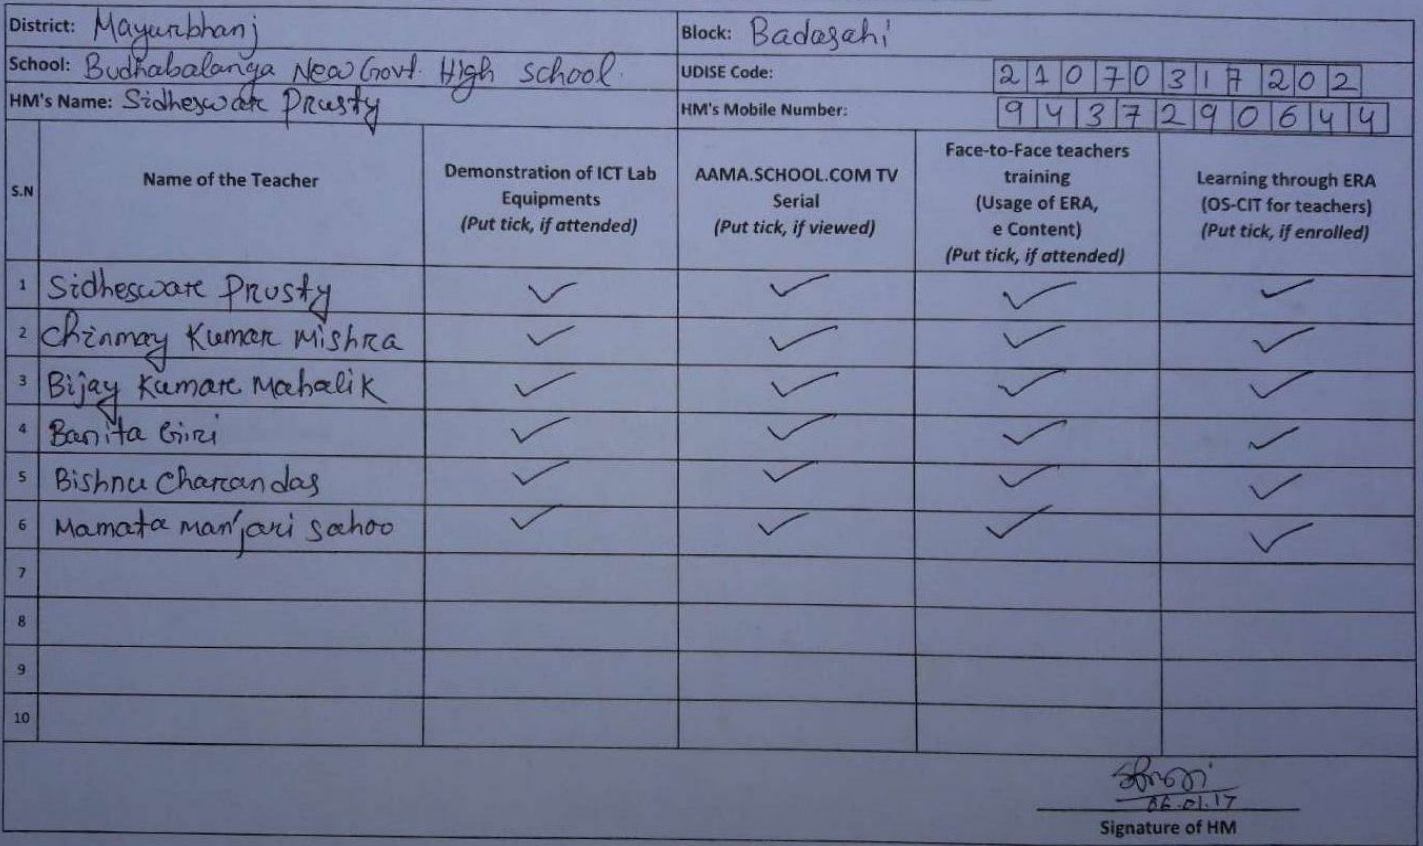 District: Mayurbhanj Block: Badasahi
School: Budhabalanga New Govt. High School. UDISE Code: 21070317202
HM's Name: Sidheswar Prusty HM's Mobile Number: 9437290644
S.N Name of the Teacher Demonstration of ICT Lab Equipments (Put tick, if attended) AAMA.SCHOOL.COM TV Serial (Put tick, if viewed) Face-to-Face teachers training (Usage of ERA, e Content) (Put tick, if attended) Learning through ERA (OS-CIT for teachers) (Put tick, if enrolled)
1 Sidheswar Prusty ✓ ✓ ✓ ✓
2 Chinmay Kumar Mishra ✓ ✓ ✓ ✓
3 Bijay Kumar Mahalik ✓ ✓ ✓ ✓
4 Banita Giri ✓ ✓ ✓ ✓
5 Bishnu Charan das ✓ ✓ ✓ ✓
6 Mamata manjari sahoo ✓ ✓ ✓ ✓
7
8
9
10
06.01.17
Signature of HM